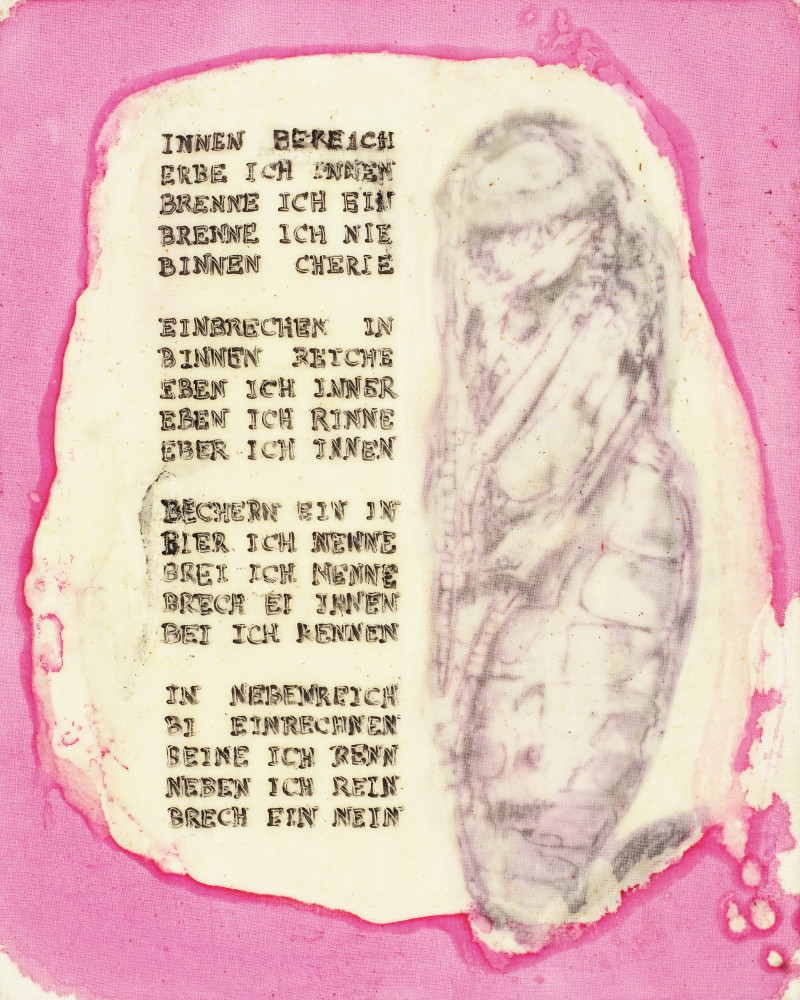 INNEN BEREICH
ERBE ICH INNEN
BRENNE ICH EIN
BRENNE ICH NIE
BINNEN CHERIE
EINBRECHEN IN
BINNEN REICHE
EBEN ICH INNER
EBEN ICH RINNE
EBER ICH INNEN
BECHERN EIN IN
BIER ICH NENNE
BREI ICH NENNE
BRECH EI INNEN
BEI ICH RENNEN
IN NEBENREICH
BI EINRECHNEN
BEINE ICH RENN
NEBEN ICH REIN
BRECH EIN NEIN